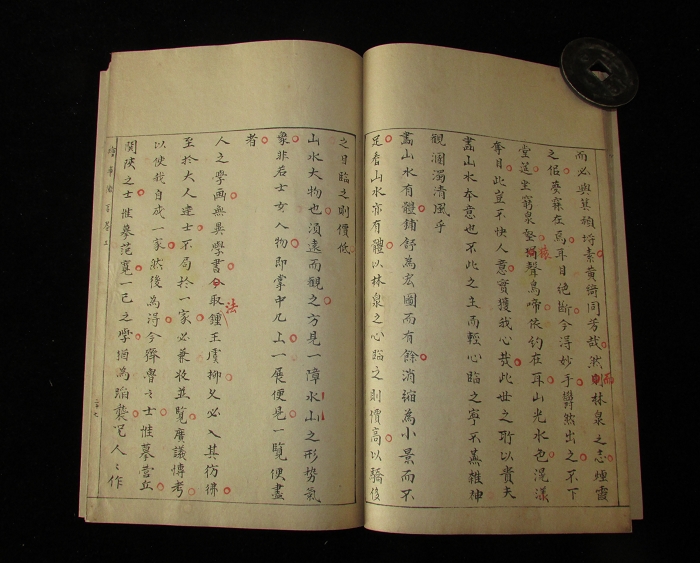 而必與箕穎埒素黃綺同芳哉然則林泉之志煙霞
而
之侶夢寐在焉耳目絕斷今得妙手欝然出之不下
堂筵坐窮泉壑猿聲鳥啼依約在耳山光水色滉漾
猿
奪目此豈不快人意實獲我心哉此世之所以貴夫
畵山水本意也不此之主而輕心臨之寧不蕪雜神
觀溷濁清風乎
畵山水有體鋪舒為宏圖而有餘消縮為小景而不
足看山水亦有體以林泉之心臨之則價高以驕侈
之目臨之則價低
山水大物也須遠而觀之方見一障水山之形勢氣
象非若士女人物即掌中几上一展便見一覧便盡
者
人之學画無異學書今取鍾王虞柳久必入其彷彿
法
至於大人達士不局於一家必兼收並覽廣議慱考
以使我自成一家然後為得今齊魯之士惟摹營丘
関陝之士惟摹范寬一己之學猶為蹈襲况人之作
二十七